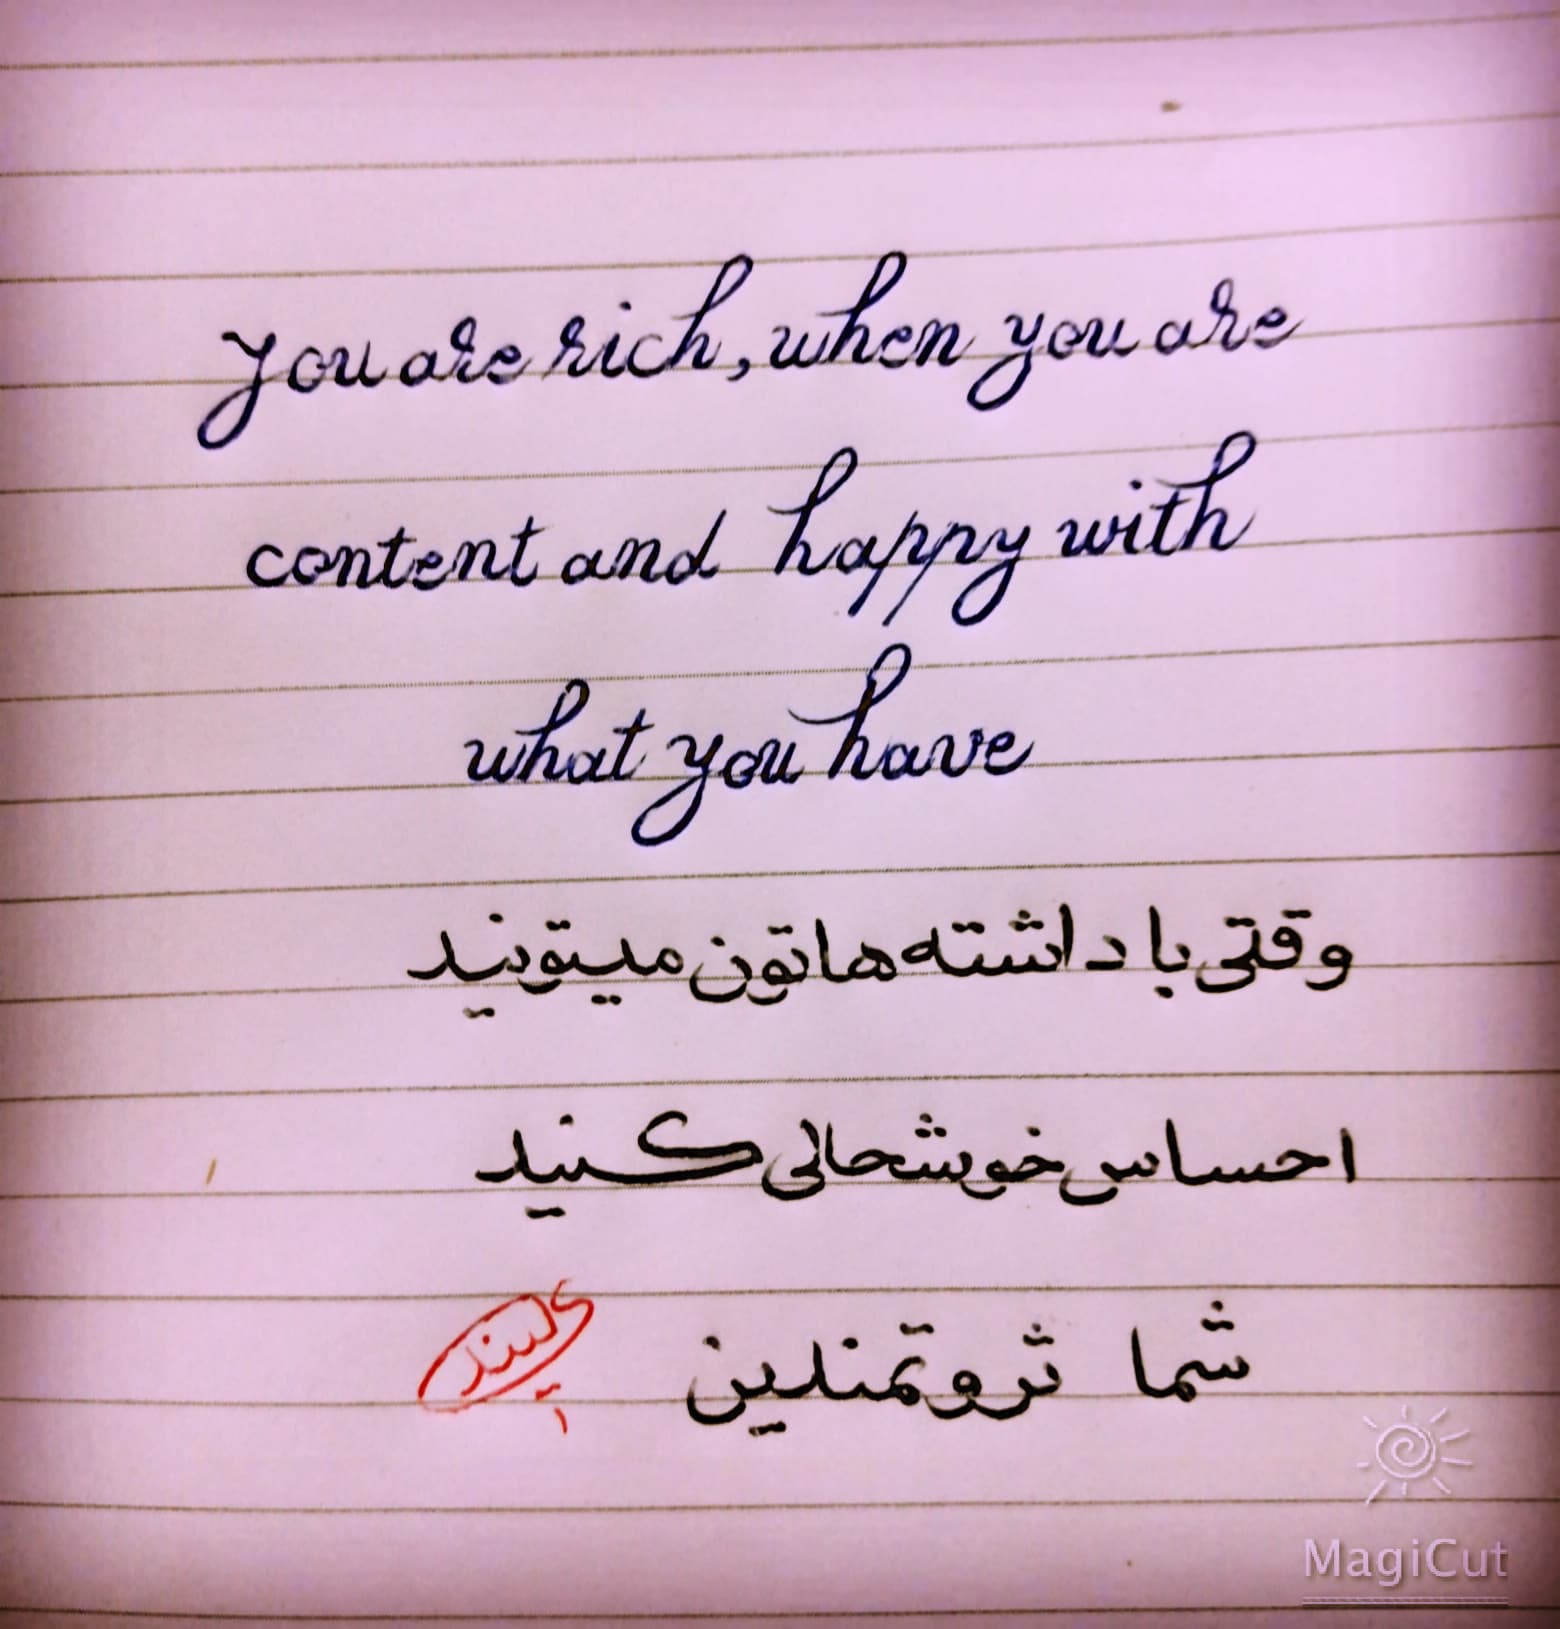 You are rich, when you are
content and happy with
what you have
وقتی با داشته هاتون میتونید
احساس خوشحالی کنید
شما ثروتمندین
MagiCut